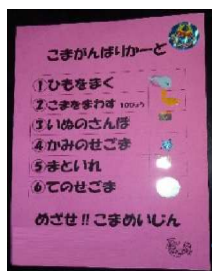 こまがんばりかーど
①ひもをまく
②こまをまわす 100びょう
③いぬのさんぽ
④かみのせごま
⑤まといれ
⑥てのせごま
めざせ!!こまめいじん